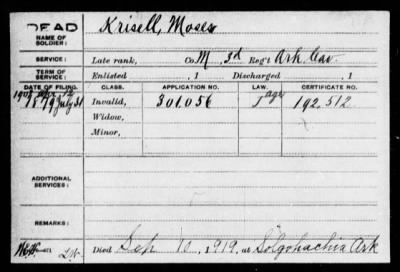 DEAD
NAME OF SOLDIER: Krisell, Moses
SERVICE: Late rank, Co. M, 3d Reg't Ark. Cav.
TERM OF SERVICE: Enlisted , 1 Discharged , 1
DATE OF FILING. CLASS. APPLICATION NO. LAW. CERTIFICATE NO.
1907 12
1879 July 31 Invalid, 301.056 age 192.512
Widow,
Minor,
ADDITIONAL SERVICES:
REMARKS:
Died Sep 10, 1919, at Solgohachia Ark